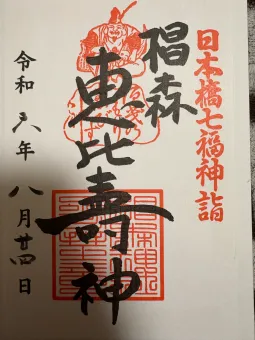 日本橋七福神詣
椙森
恵比壽神
令和六年
八月廿四日